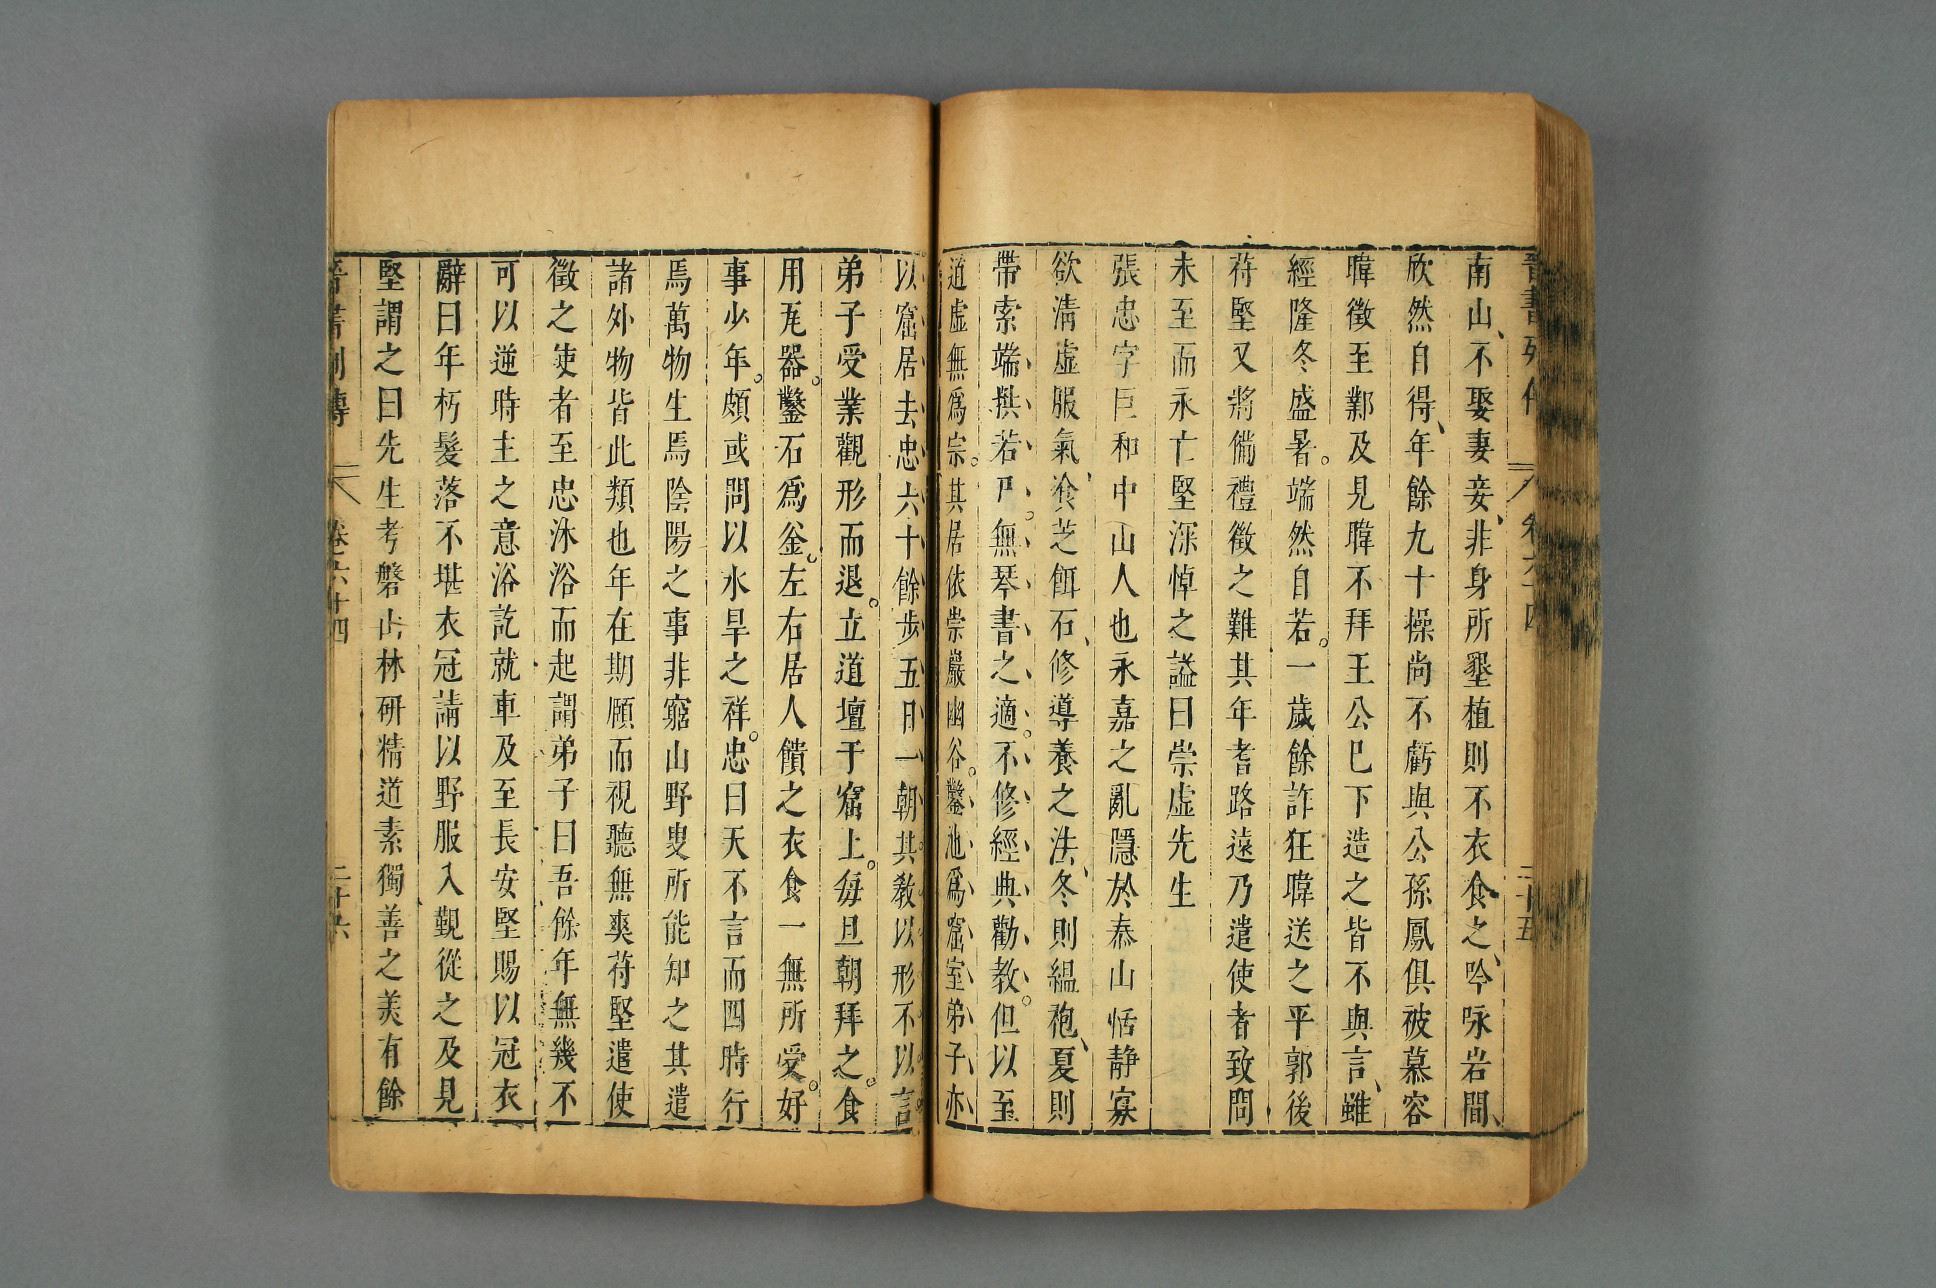 晉書列傳 卷六十四 二十五
南山、不娶妻妾、非身所墾植則不衣食之、吟咏岩間、
欣然自得、年餘九十操尚不虧與公孫鳳俱被慕容
暐徵至鄴及見暐不拜王公已下造之皆不與言、雖
經隆冬盛暑。端然自若。一歲餘詐狂暐送之平郭後
苻堅又將備禮徵之難其年耆路遠乃遣使者致問
未至而永亡堅深悼之謚曰崇虛先生
張忠字巨和中山人也永嘉之亂隱於泰山恬靜寡
欲清虛服氣、飡芝餌石、修導養之法、冬則縕袍、夏則
帶索端拱若尸。無琴書之適。不修經典勸教。但以至
道虛無爲宗。其居依崇巖幽谷。鑿池爲窟室弟子亦
以窟居去忠六十餘步五日一朝其敎以形不以言
弟子受業觀形而退。立道壇于窟上。每旦朝拜之。食
用瓦器。鑿石爲釜。左右居人饋之衣食一無所受。好
事少年。頗或問以水旱之祥。忠曰天不言而四時行
焉萬物生焉陰陽之事非窮山野叟所能知之其遣
諸外物皆此類也年在期頤而視聽無爽苻堅遣使
徵之使者至忠沐浴而起謂弟子曰吾餘年無幾不
可以逆時主之意浴訖就車及至長安堅賜以冠衣
辭曰年朽髮落不堪衣冠請以野服入覲從之及見
堅謂之曰先生考磐山林研精道素獨善之美有餘
晉書列傳 卷六十四 二十六